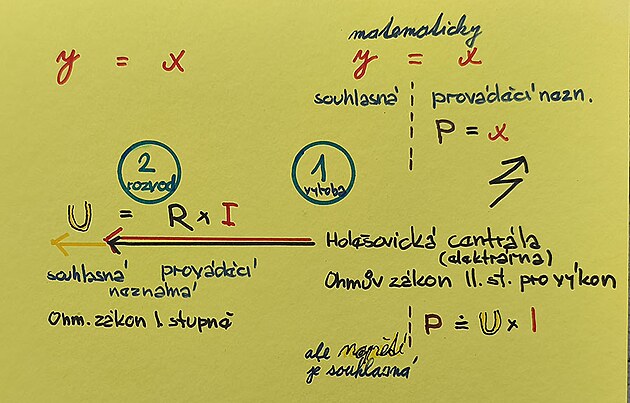 matematicky
y = x
y = x
souhlasná
provádécí nezn.
P = x
2
rozvod
1
výroba
U = R x I
Holešovická centrála
(elektrárna)
souhlasná provádécí
neznámá
Ohmův zákon II. st. pro výkon
Ohm. zákon I. stupně
P ≐ U x I
ale napětí
je souhlasná